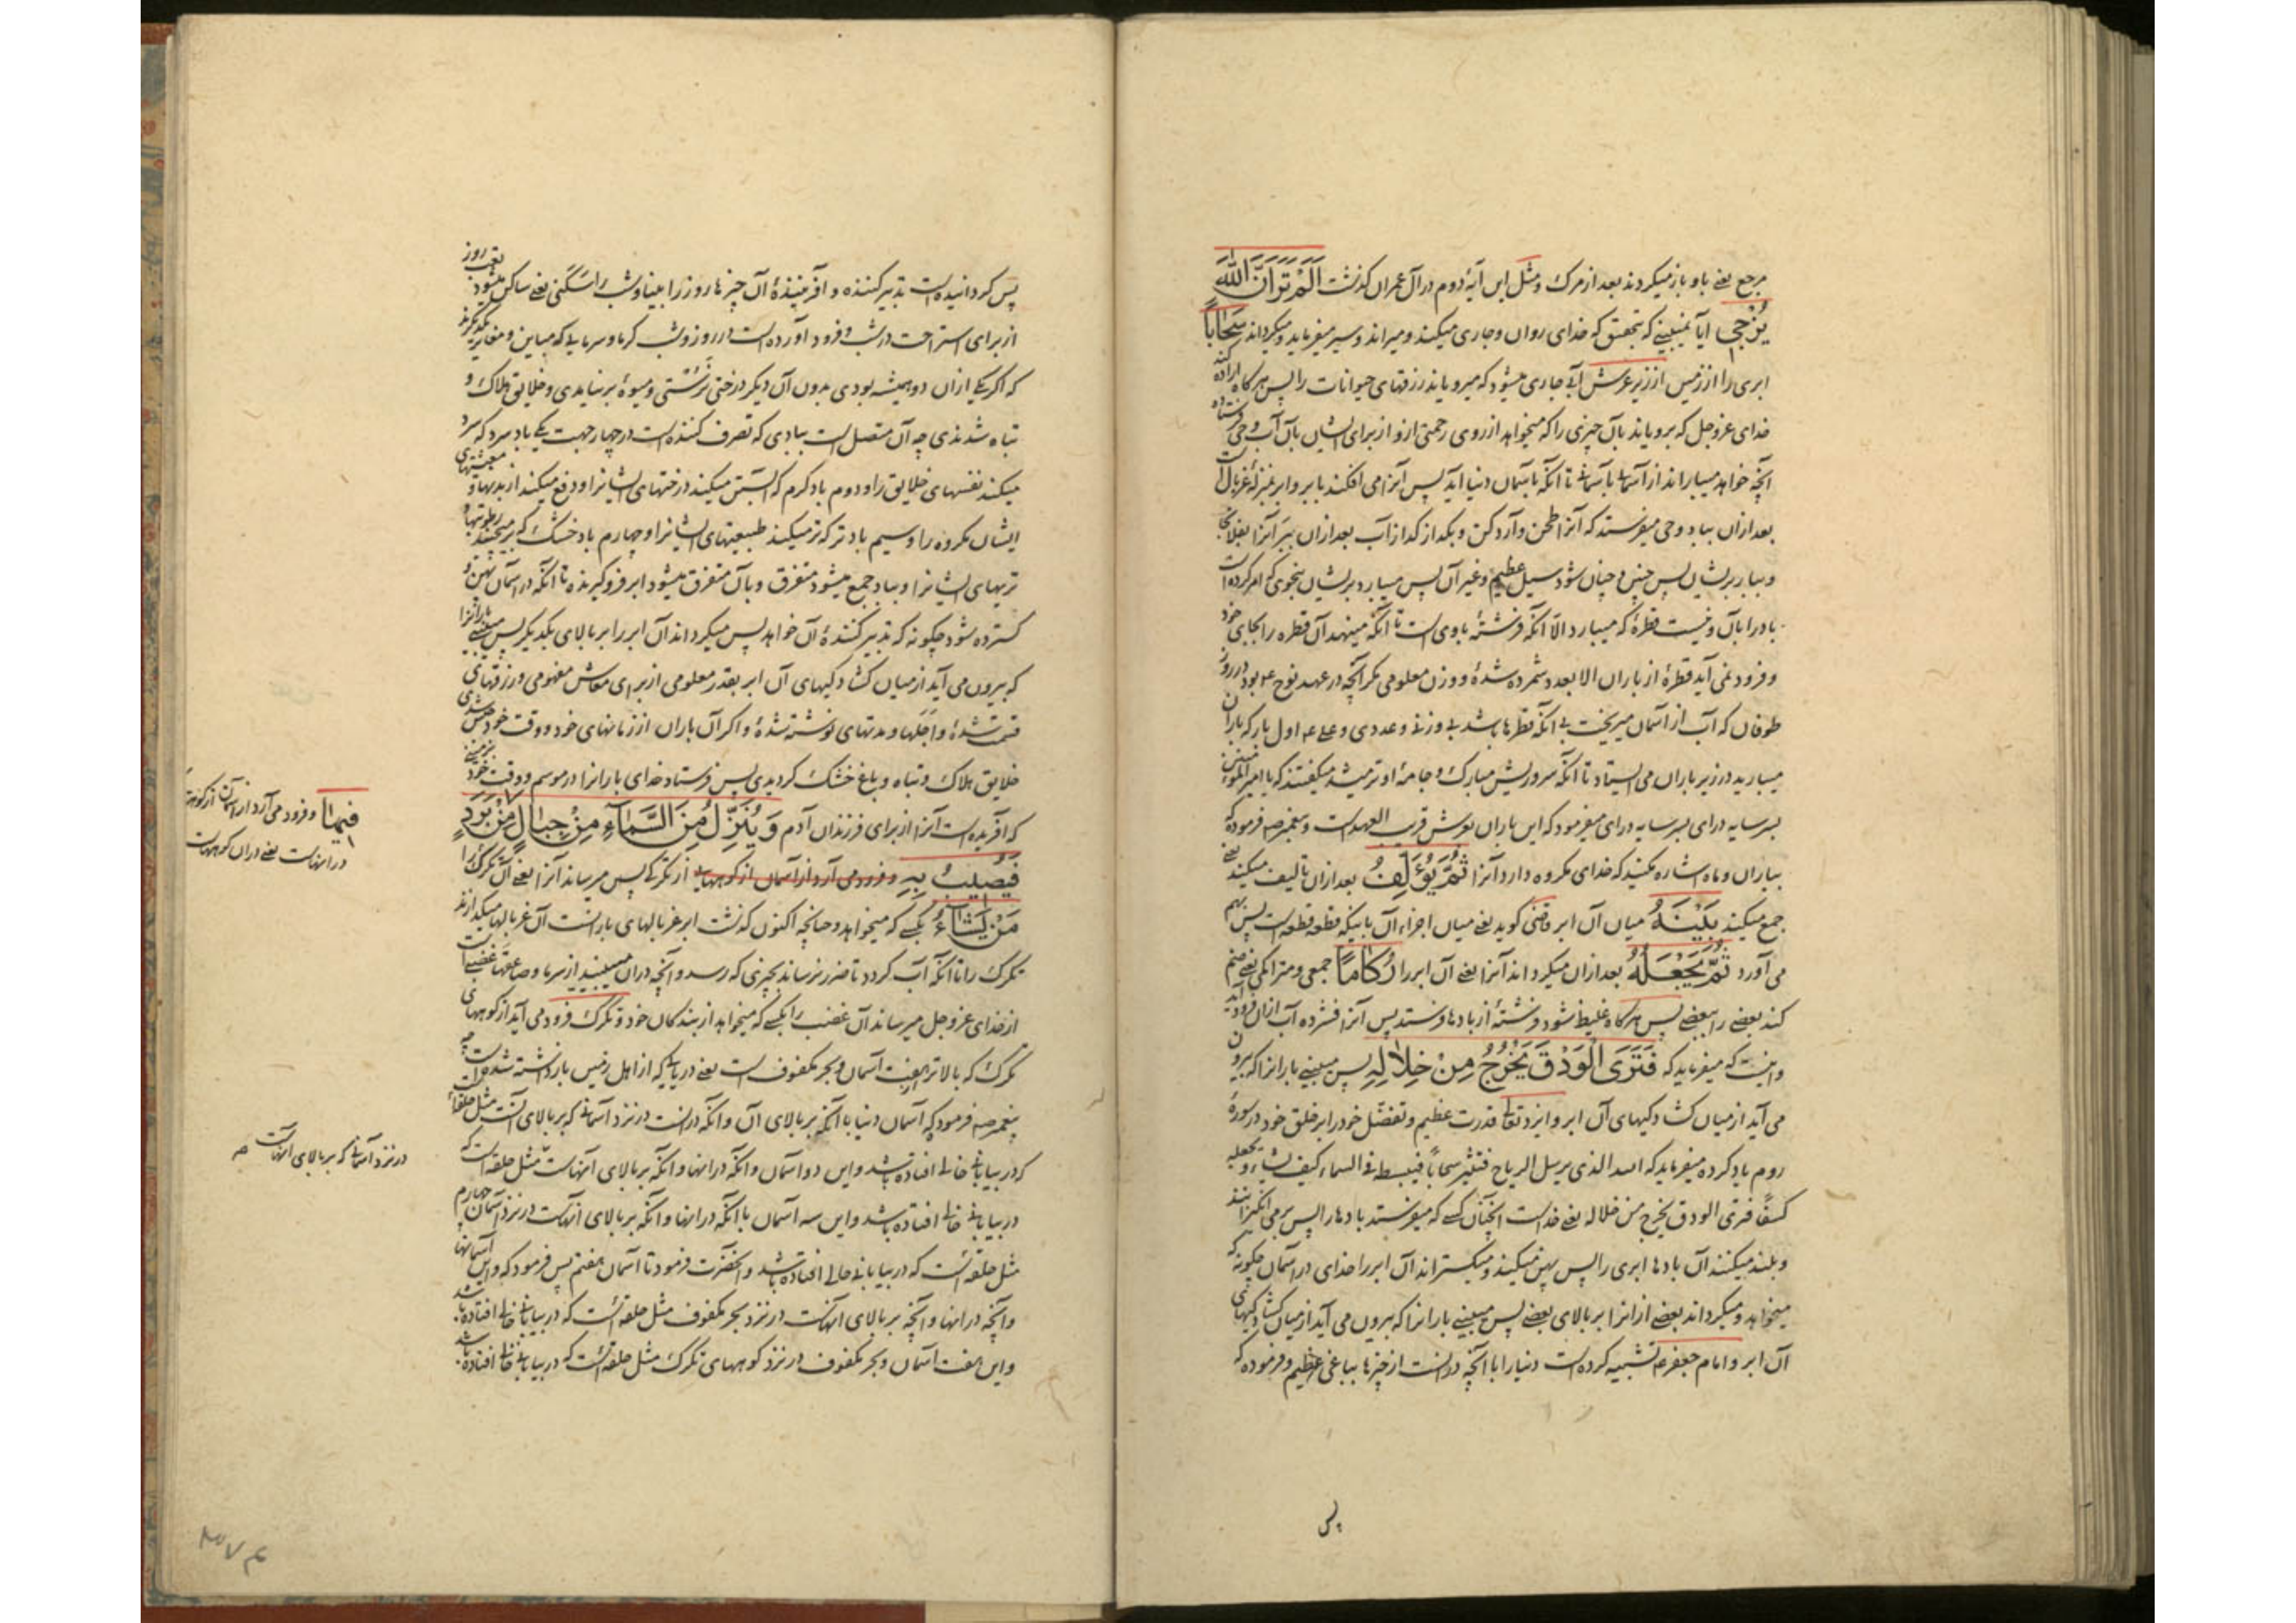 مرجع یعنے باو باز میکردند بعد از مرک و مثل این آیهٔ دوم در آل عمران کذشت اَلَمْ تَرَ اَنَّ اللّٰهَ
یُزْجِی آیا نمیبینے که بتحقیق که خدای روان و جاری میکند و میراند و سیر میفرماید و میکرداند سَحَاباً
ابری را از زمین از زیر عرش آبے جاری میشود که میرویاند رزقهای حیوانات را پس هرکاه اراده کند
خدای عزوجل که برویاند بآن چیزی را که میخواهد از روی رحمتی ازو از برای ایشان بآن آب وحی
آنچه خواهد میباراند از آسمانے بآسمانے تا آنکه بآسمان دنیا آید پس آنرا می افکند بابر و ابر بمنزلهٔ غربال است
بعد ازان بباد وحی میفرستد که آنرا طحن و آرد کن و بکداز کداز آب بعد ازان ببر آنرا بفلانجا
و ببار بریشان پس چنین و چنان شود سیل عظیم و غیر آن پس میبارد بریشان بنحوی که امر کرده است
باد را بآن و نیست قطرهٔ که میبارد الّا آنکه فرشتهٔ باوی است تا آنکه مینهد آن قطره را بجای خود
و فرود نمی آید قطرهٔ از باران الا بعدد شمرده شدهٔ و وزن معلومی مکر آنچه در عهد نوح ع بود در روز
طوفان که آب از آسمان میریخت بے آنکه قطرها باشد بے وزنے و عددی و علے ع اول بار که باران
میبارید در زیر باران می ایستاد تا آنکه سر و ریش مبارک و جامهٔ او تر میشد میکفتند که یا امیرالمؤمنین
بسر سایه درای بسر سایه درای میفرمود که این باران بعرش قریب العهد است و پیغمبر ص فرموده که
بباران و ماه اشاره مکنید که خدای مکروه دارد آنرا ثُمَّ یُؤَلِّفُ بعد ازان تالیف میکند یعنے
جمع میکند بَیْنَهُ میان آن ابر قاضی کوید یعنے میان اجزاء آن باینکه قطعه قطعه است پس بهم
می آورد ثُمَّ یَجْعَلُهُ بعد ازان میکرداند آنرا یعنے آن ابر را رُکَاماً جمعی و متراکمی یعنے ضم
کند بعضے را ببعضے پس هرکاه غلیظ شود فرشتهٔ از بادها فرستد پس آنرا فشرده آب ازان فرود آید
و اینست که میفرماید که فَتَرَی الْوَدْقَ یَخْرُجُ مِنْ خِلَالِهِ پس میبینے بارانرا که بیرون
می آید از میان کشادکیهای آن ابر و ایزد تعالے قدرت عظیم و تفضّل خود را بر خلق خود در سورهٔ
روم یاد کرده میفرماید که الله الذی یرسل الریاح فتثیر سحاباً فیبسطه فی السماء کیف یشاء و یجعله
کسفاً فتری الودق یخرج من خلاله یعنے خداست آنچنان کسے که میفرستد بادها را پس برمی انکیزانند
و بلند میکنند آن بادها ابری را پس پهن میکند و میکستراند آن ابر را خدای در آسمان چکونه که
میخواهد و میکرداند بعضے از آنرا بر بالای بعضے پس میبینے بارانرا که بیرون می آید از میان کشادکیهای
آن ابر و امام جعفر ع تشبیه کرده است دنیا را با آنچه درانست از چیزها بباغی عظیم و فرموده که
پس
پس کردانیده است تدبیر کننده و آفرینندهٔ آن چیزها روز را بینا و شب را سکنی یعنے ساکن میشود
از برای استراحت در شب و فرود آورده است در روز و شب کرما و سرمایے که مباین و مغایر یکدیکرند
که اکر یکے ازان دو همیشه بودی بدون آن دیکر درختی نرستی و میوهٔ برنیامدی و خلایق هلاک و
تباه شدندی چه آن متصل است ببادی که تصرف کننده است در چهار جهت یکے باد سرد که سرد
میکند نفسهای خلایق را و دوم باد کرم که آبستن میکند درختهای ایشانرا و دفع میکند از بدنها و معیشتهای
ایشان مکروه را و سیم باد تر که تر میکند طبیعتهای ایشانرا و چهارم باد خشک که برمیچیند رطوبتها و
تریهای ایشانرا و بباد جمع میشود متفرق و بآن متفرق میشود ابر فروکیرنده تا آنکه در آسمان پهن و
کسترده شود چکونه که تدبیر کنندهٔ آن خواهد پس میکرداند آن ابر را بر بالای یکدیکر پس میبینے بارانرا
که بیرون می آید از میان کشادکیهای آن ابر بقدر معلومی از برای معاش مفهومی و رزقهای
قسمت شدهٔ و اجلها و مدتهای نوشته شدهٔ و اکر آن باران از زمانهای خود و وقت خود حبس شدی
خلایق هلاک و تباه و باغ خشک کردیدی پس فرستاد خدای بارانرا در موسم و وقت خود
که آفریده است آنرا از برای فرزندان آدم وَ یُنَزِّلُ مِنَ السَّمَآءِ مِنْ جِبَالٍ مِنْ بَرَدٍ
فَیُصِیبُ بِهِ و فرود می آرد از آسمان از کوههایے از تکرک پس میرساند آنرا یعنے آن تکرک را
مَنْ یَشَآءُ بکسے که میخواهد و چنانچه اکنون کذشت ابر غربالهای بارانست آن غربالها میکدازند
تکرک را تا آنکه آب کردد تا ضرر نرساند بچیزی که رسد و آنچه دران میبینید از سرما و صاعقها غضبے است
از خدای عزوجل میرساند آن غضب را بکسے که میخواهد از بندکان خود و تکرک فرود می آید از کوههای
تکرک که بالاتر هفت آسمان و بحر مکفوف است یعنے دریایے که از اهل زمین بازداشته شده است چه
پیغمبر ص فرمود که آسمان دنیا با آنکه بر بالای آن و آنکه درانست در نزد آسمانے که بر بالای آنست مثل حلقهٔ است
که در بیابانے خالے افتاده باشد و این دو آسمان و آنکه درانها و آنکه بر بالای آنهاست مثل حلقهٔ است که
در بیابانے خالے افتاده باشد و این سه آسمان با آنکه درانها و آنکه بر بالای آنهاست در نزد آسمان چهارم
مثل حلقهٔ است که در بیابانے خالے افتاده باشد و آنحضرت فرمود تا آسمان هفتم پس فرمود که و این آسمانها
و آنچه درانها و آنچه بر بالای آنهاست در نزد بحر مکفوف مثل حلقهٔ است که در بیابانے خالے افتاده باشد
و این هفت آسمان و بحر مکفوف در نزد کوههای تکرک مثل حلقهٔ است که در بیابانے خالے افتاده باشد
فیها و فرود می آرد از آسمان از کوههایے
درانهاست یعنے دران کوههاست
در نزد آسمانے که بر بالای آنهاست ص